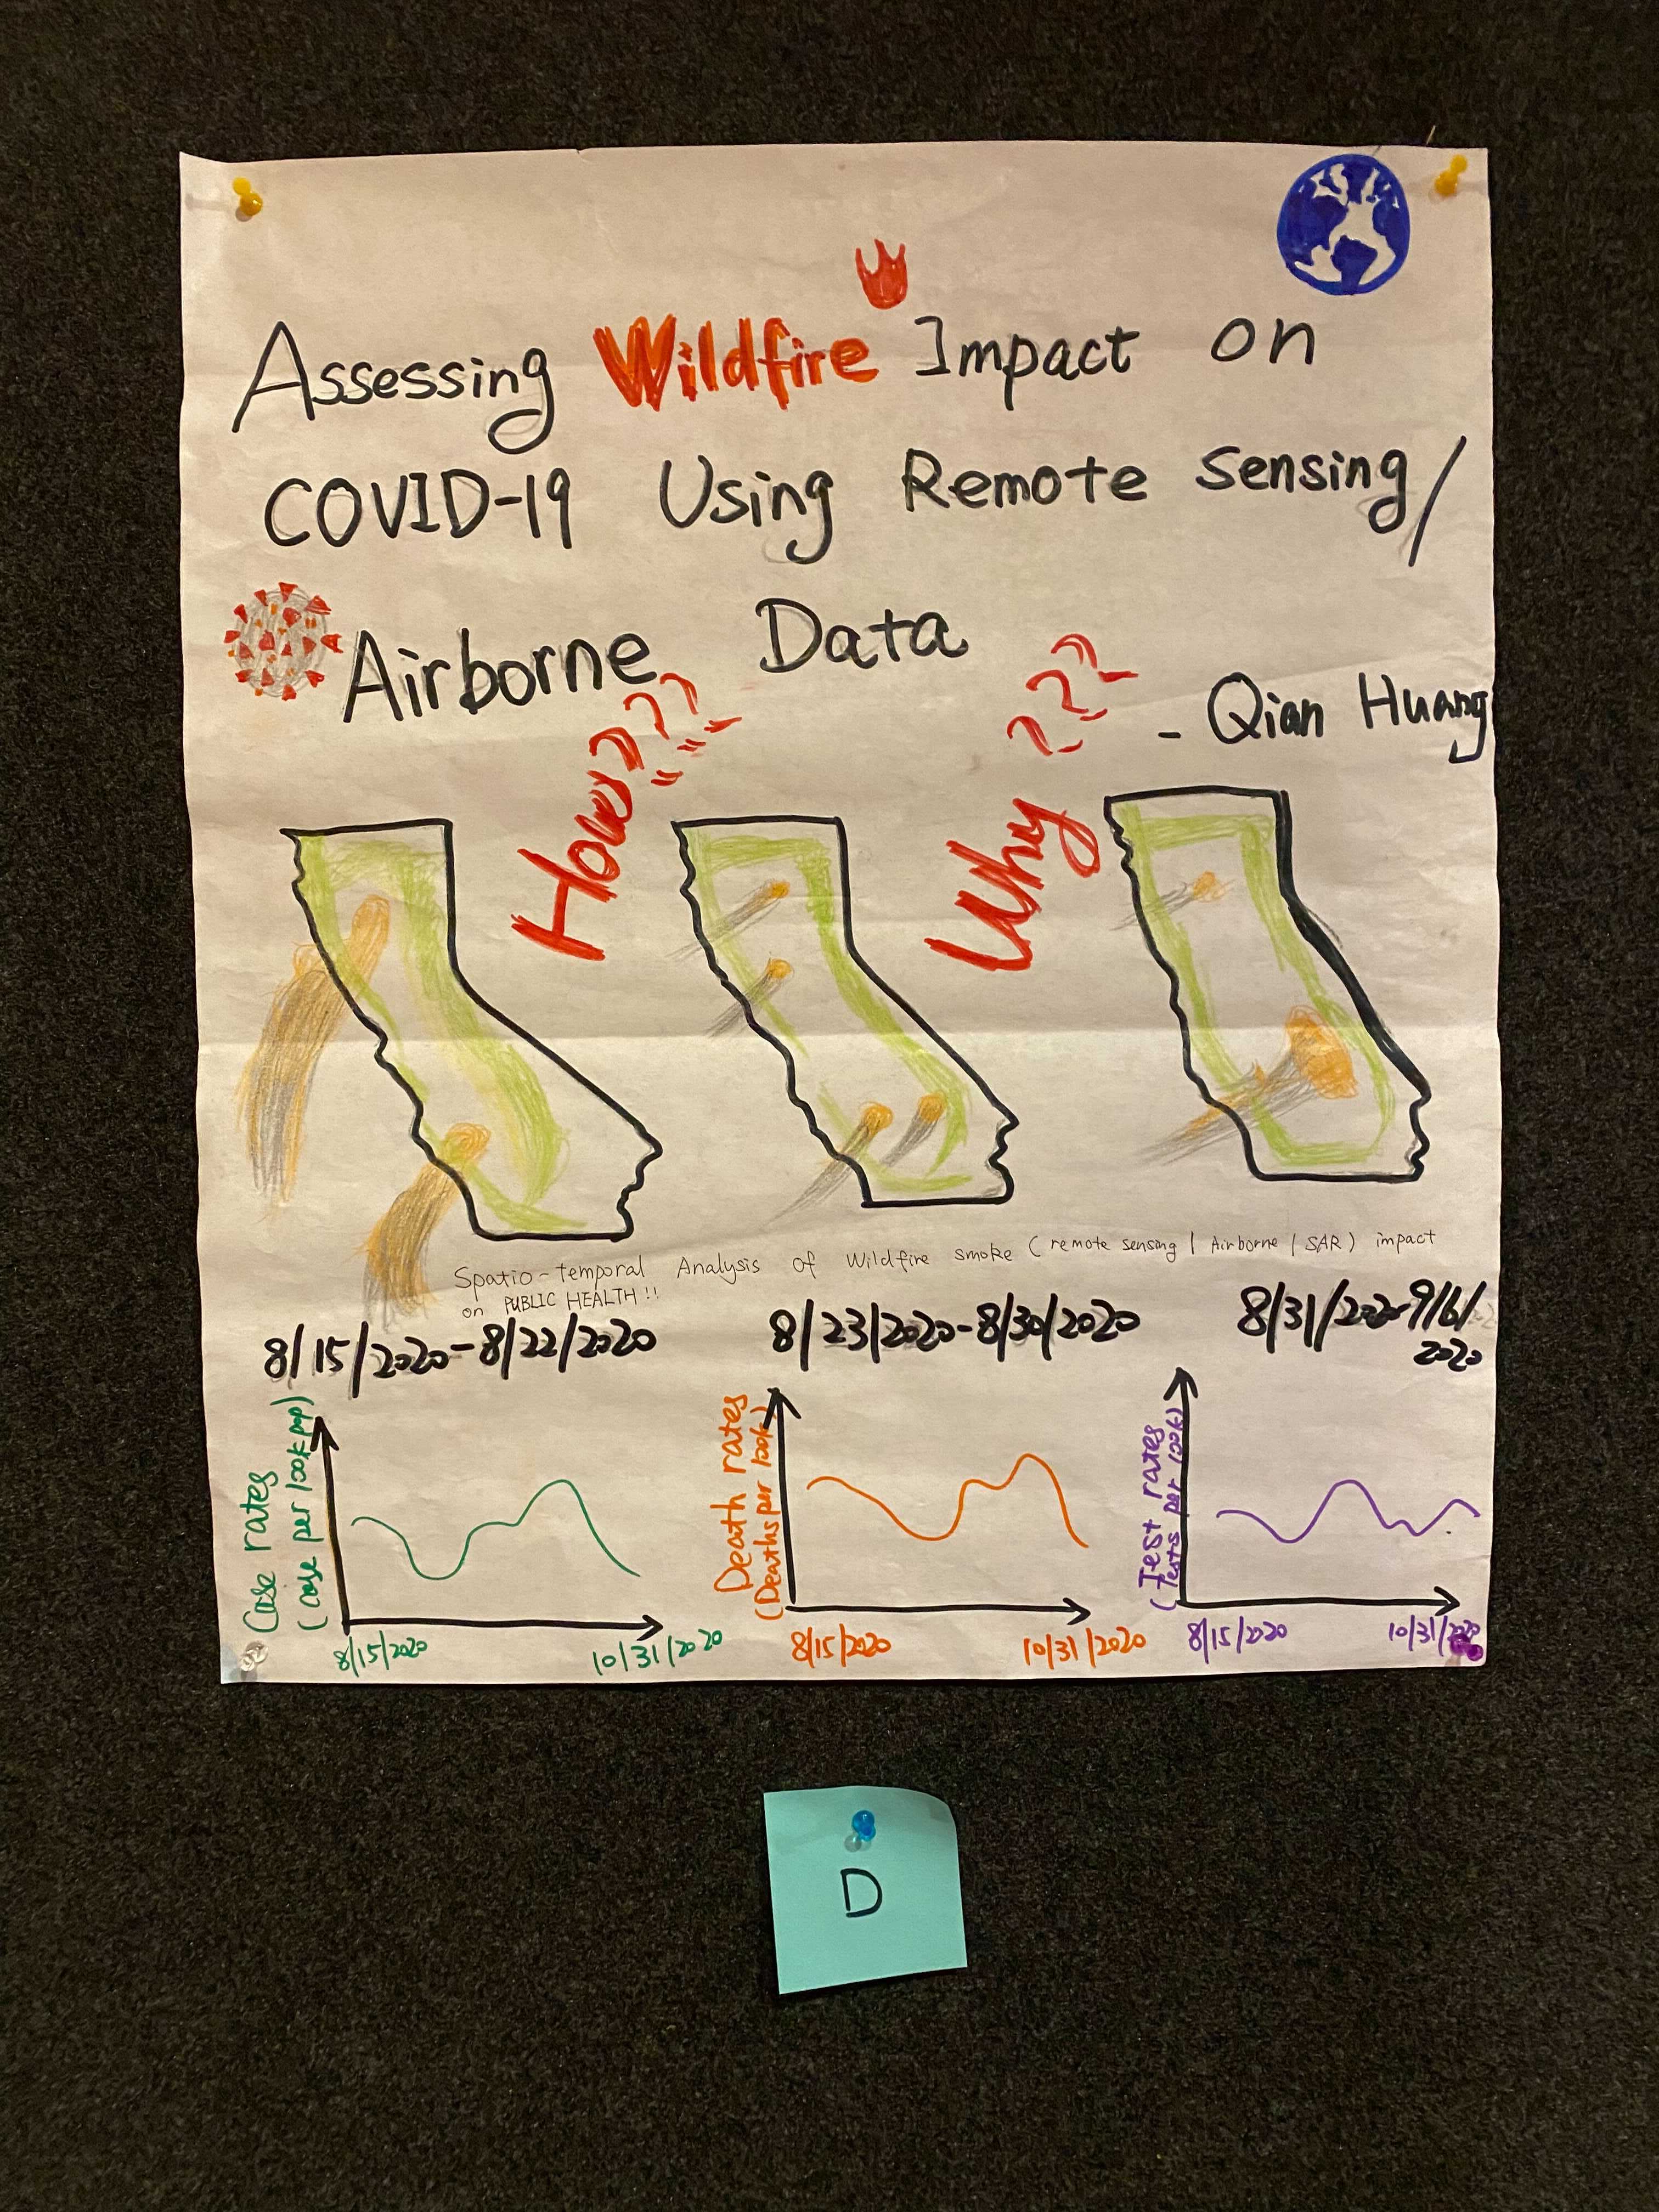 Assessing Wildfire Impact on
COVID-19 Using Remote Sensing/
Airborne Data
- Qian Huang
How???
Why???
Spatio-temporal Analysis of Wildfire smoke (remote sensing / Airborne / SAR) impact
on PUBLIC HEALTH!!
8/15/2020-8/22/2020
8/23/2020-8/30/2020
8/31/2020-9/6/
2020
Case rates
(case per 100k pop)
8/15/2020
10/31/2020
Death rates
(Deaths per 100k)
8/15/2020
10/31/2020
Test rates
(Tests per 100k)
8/15/2020
10/31/2020
D